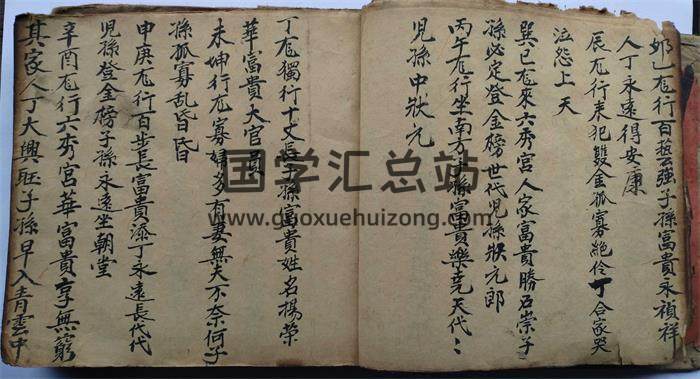 龙行百步強子孫富貴永禎祥
人丁永遠得安康
辰龙行来犯雙金孤寡絶伶丁合家哭
泣怨上天
巽巳龙來六秀宮人家富貴勝石崇子
孫必定登金榜世代児孫狀元郎
丙午龙行坐南方子孫富貴樂堯天代〻
児孫中狀元
丁龙獨行十丈長子孫富貴姓名揚榮
華富貴大官員
未坤行龙寡婦多有妻無夫不奈何子
孫孤寡乱昏昏
申庚龙行百步長富貴添丁永遠長代代
児孫登金榜子孫永遠坐朝堂
辛酉龙行六秀宮華富貴享無窮
其家人丁大興旺子孫早入青雲中
国学汇总站
www.guoxuehuizong.com